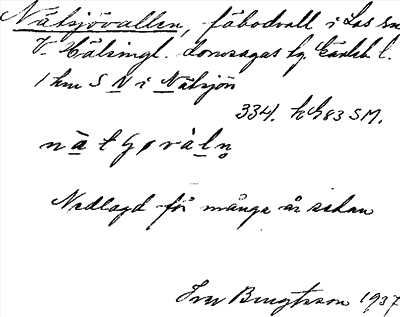 Nätsjövallen, fäbodvall i Los sn
V. Hälsingl. domsagas hg. Gävleb. l.
1 km S N i Nätsjön
334. h G 83 SM.
n ä t G ø r v à l n̥
Nedlagd för många år sedan
Bengtsson 1937